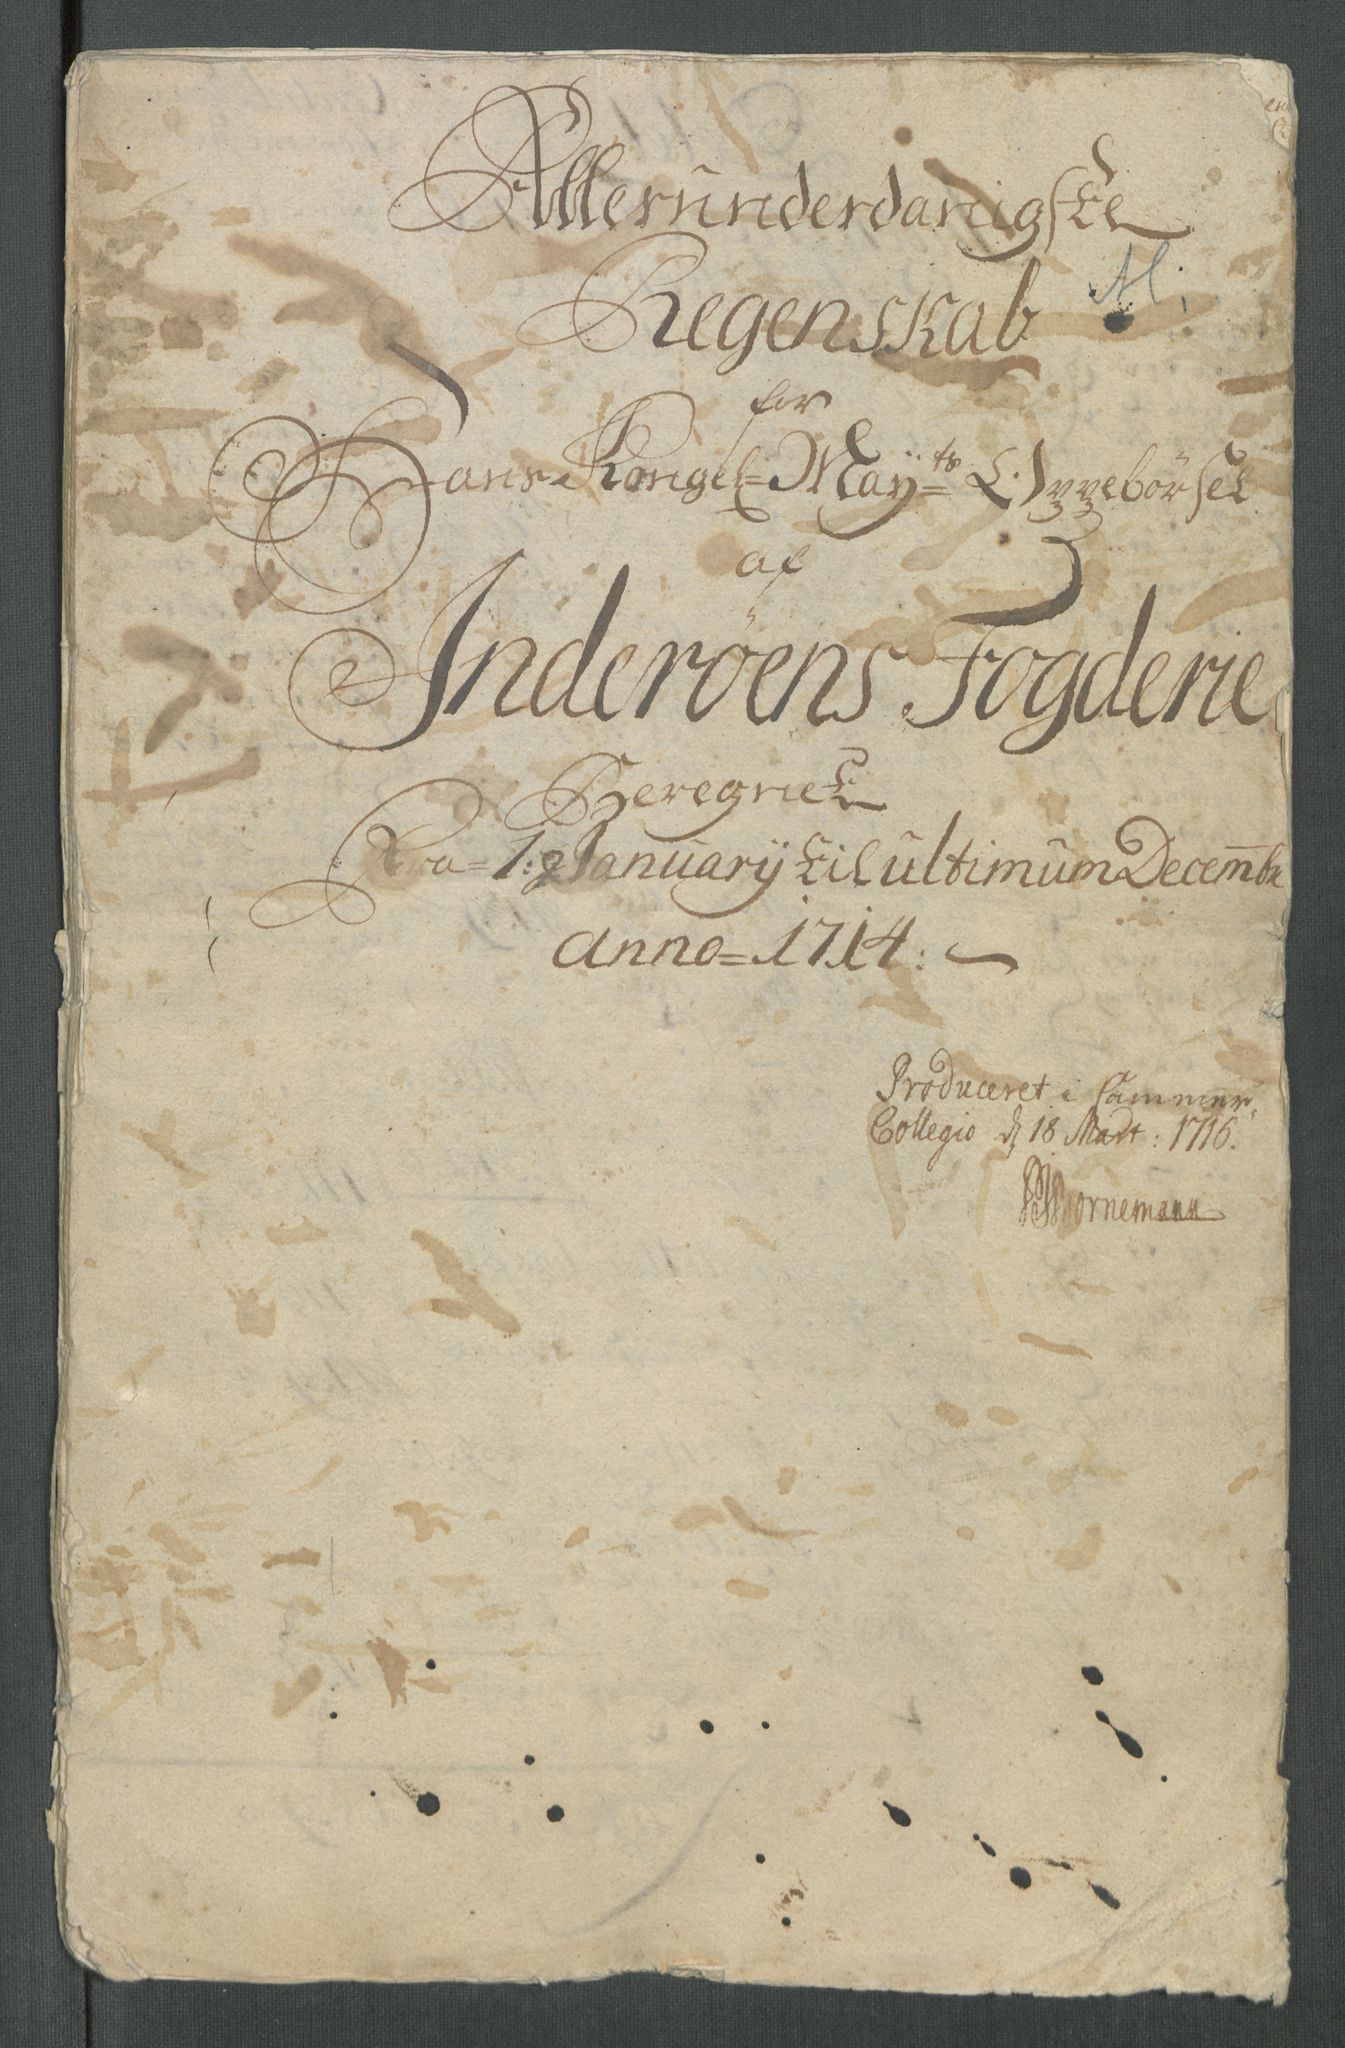 Allerunderdanigste
Regenskab M.
for
Hans Kongel= Maÿ=ts Oppebörsel
af
Inderöens Fogderie
Beregnet
Fra=1: January til ultimum Decembr
anno=1714:
Produceret i Cammer
Collegio d 18 Mart: 1716.
Bornemann